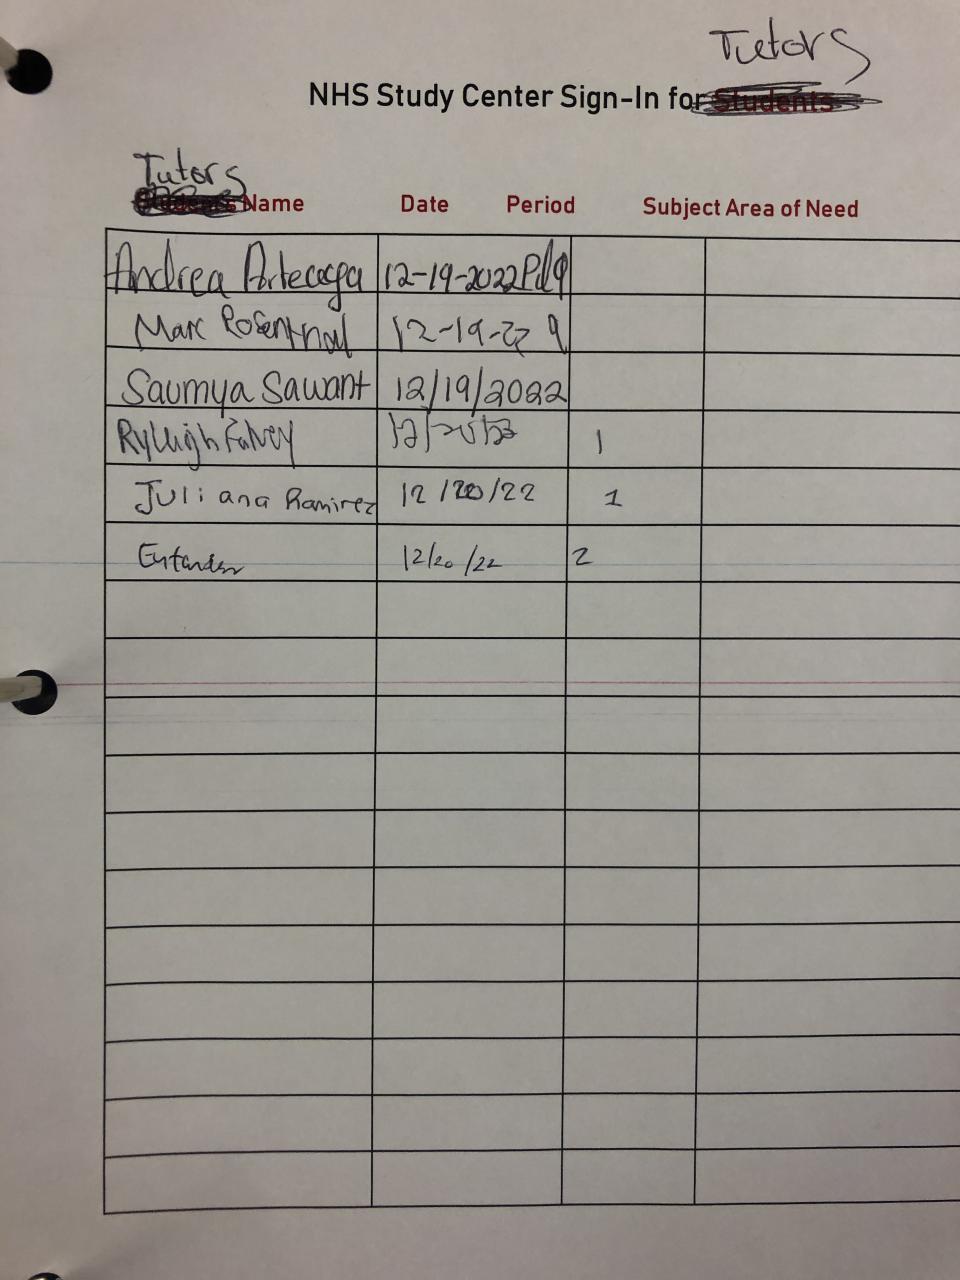 Tutors
NHS Study Center Sign-In for Students
Tutors
Name Date Period Subject Area of Need
Andrea 12-19-2022
Marc Rosenthal 12-19-22 9
Saumya Sawant 12/19/2022
Ryleigh Falvey 1
Juliana Ramirez 12/20/22 1
12/20/22 2